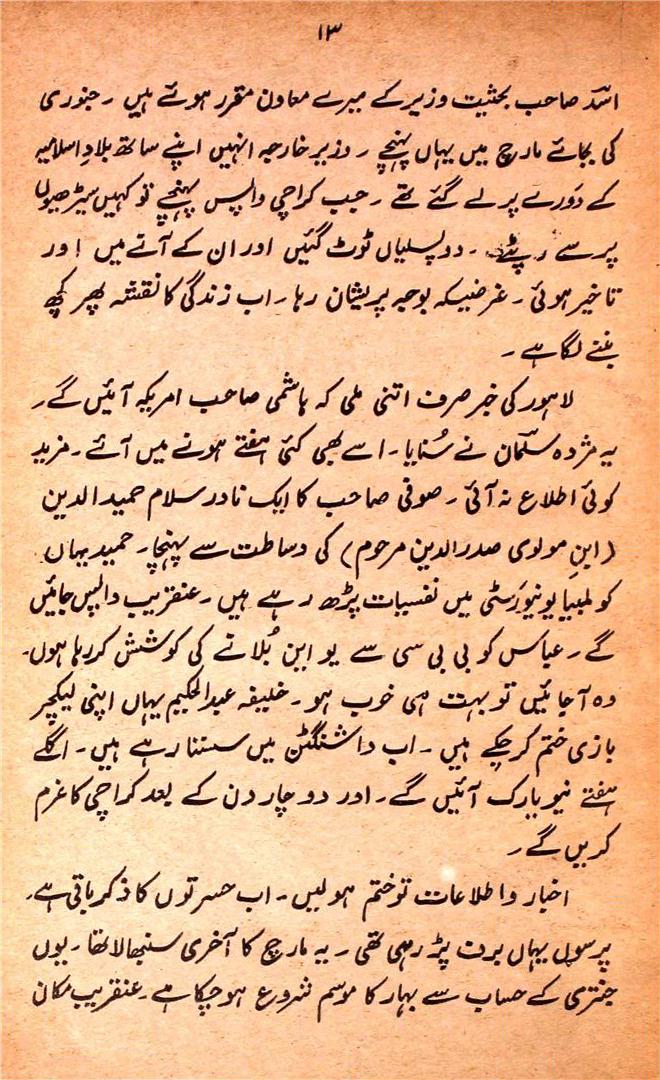 ۱۳
اسدؔ صاحب بحثیت وزیر کے میرے معاون مقرر ہوئے ہیں ۔ جنوری
کی بجائے مارچ میں یہاں پہنچے ۔ وزیر خارجہ انہیں اپنے ساتھ بلادِ اسلامیہ
کے دَورے پر لے گئے تھے ۔ جب کراچی واپس پہنچے تو کہیں سیڑھیوں
پر سے رپٹے ۔ دو پسلیاں ٹوٹ گئیں اور ان کے آنے میں اور
تاخیر ہوئی ۔ غرضیکہ بوجہ پریشان رہا ۔ اب زندگی کا نقشہ پھر کچھ
بننے لگا ہے ۔
لاہور کی خبر صرف اتنی ملی کہ ہاشمی صاحب امریکہ آئیں گے ۔
یہ مژدہ سلمان نے سُنایا ۔ اسے بھی کئی ہفتے ہونے میں آئے ۔ مزید
کوئی اطلاع نہ آئی ۔ صوفی صاحب کا ایک نادر سلام حمید الدین
(ابنِ مولوی صدر الدین مرحوم) کی وساطت سے پہنچا ۔ حمید یہاں
کولمبیا یونیورسٹی میں نفسیات پڑھ رہے ہیں ۔ عنقریب واپس جائیں
گے ۔ عباس کو بی بی سی سے یو این بُلانے کی کوشش کر رہا ہوں ۔
وہ آ جائیں تو بہت ہی خوب ہو ۔ خلیفہ عبدالحکیم یہاں اپنی لیکچر
بازی ختم کر چکے ہیں ۔ اب واشنگٹن میں سستا رہے ہیں ۔ اگلے
ہفتے نیویارک آئیں گے ۔ اور دو چار دن کے بعد کراچی کا عزم
کریں گے ۔
اخبار و اطلاعات تو ختم ہو لیں ۔ اب حسرتوں کا ذکر باقی ہے ۔
پرسوں یہاں برف پڑ رہی تھی ۔ یہ مارچ کا آخری سنبھالا تھا ۔ یوں
جنتری کے حساب سے بہار کا موسم شروع ہو چکا ہے ۔ عنقریب مکان